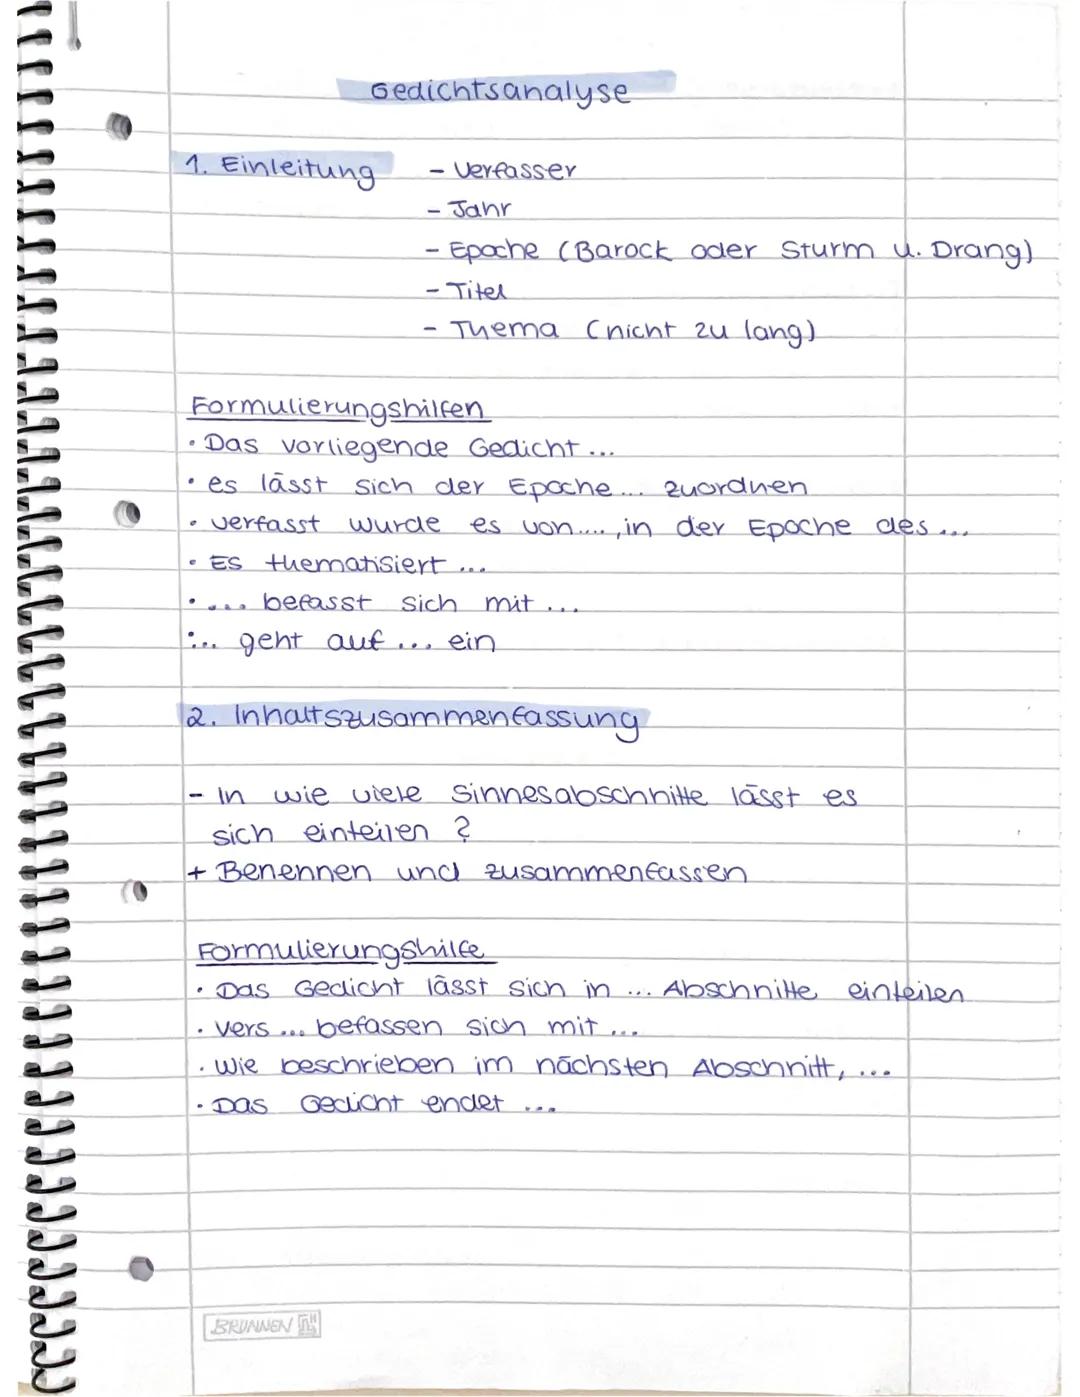 Gedichtsanalyse
1. Einleitung - Verfasser
- Jahr
- Epoche (Barock oder Sturm u. Drang)
- Titel
- Thema (nicht zu lang)
Formulierungshilfen
• Das vorliegende Gedicht ...
• es lässt sich der Epoche ... zuordnen
• verfasst wurde es von...., in der Epoche des ...
• Es thematisiert ...
• ... befasst sich mit ...
• ... geht auf ... ein
2. Inhaltszusammenfassung
- In wie viele Sinnesabschnitte lässt es
sich einteilen ?
+ Benennen und zusammenfassen
Formulierungshilfe
• Das Gedicht lässt sich in ... Abschnitte einteilen
• Vers ... befassen sich mit ...
• Wie beschrieben im nächsten Abschnitt, ...
• Das Gedicht endet ...
BRUNNEN